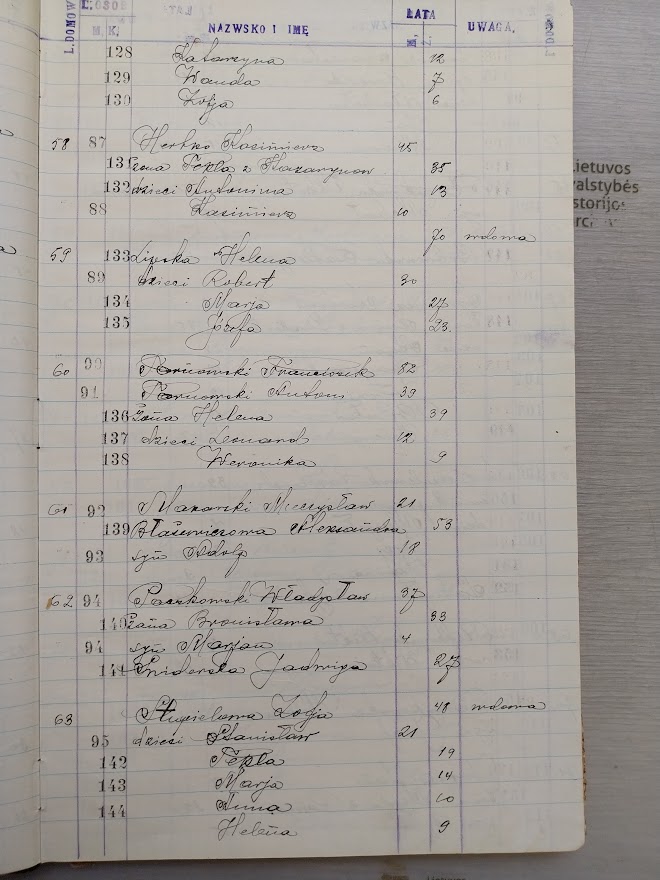 L.DOMOW L.OSOB NAZWSKO I IMĘ LATA UWAGA.
M. K. M. Ż.
128 Katarzyna 12
129 Wanda 7
130 Zofja 6
58 87 Herbko Kazimierz 45
131 żona Tekla z Kazarynow 35
132 dzieci Antonina 13
88 Kazimierz 10
70 wdowa
59 133 Lipska Helena
89 dzieci Robert 30
134 Marja 27
135 Józefa 23.
60 90 Tarnowski Franciszek 82
91 Tarnowski Antoni 39
136 żona Helena 39
137 dzieci Leonard 12
138 Weronika 9
61 92 Makarski Mieczysław 21
139 Błażewiczowa Aleksandra 53
93 syn Adolf 18
62 94 Paszkowski Władysław 37
140 żona Bronisława 33
94 syn Marjan 4
141 Sniderska Jadwiga 27
63 Zofja 48 wdowa
95 dzieci Stanisław 21
142 Tekla 19
143 Marja 14
144 Anna 10
Helena 9
Lietuvos
valstybės
istorijos